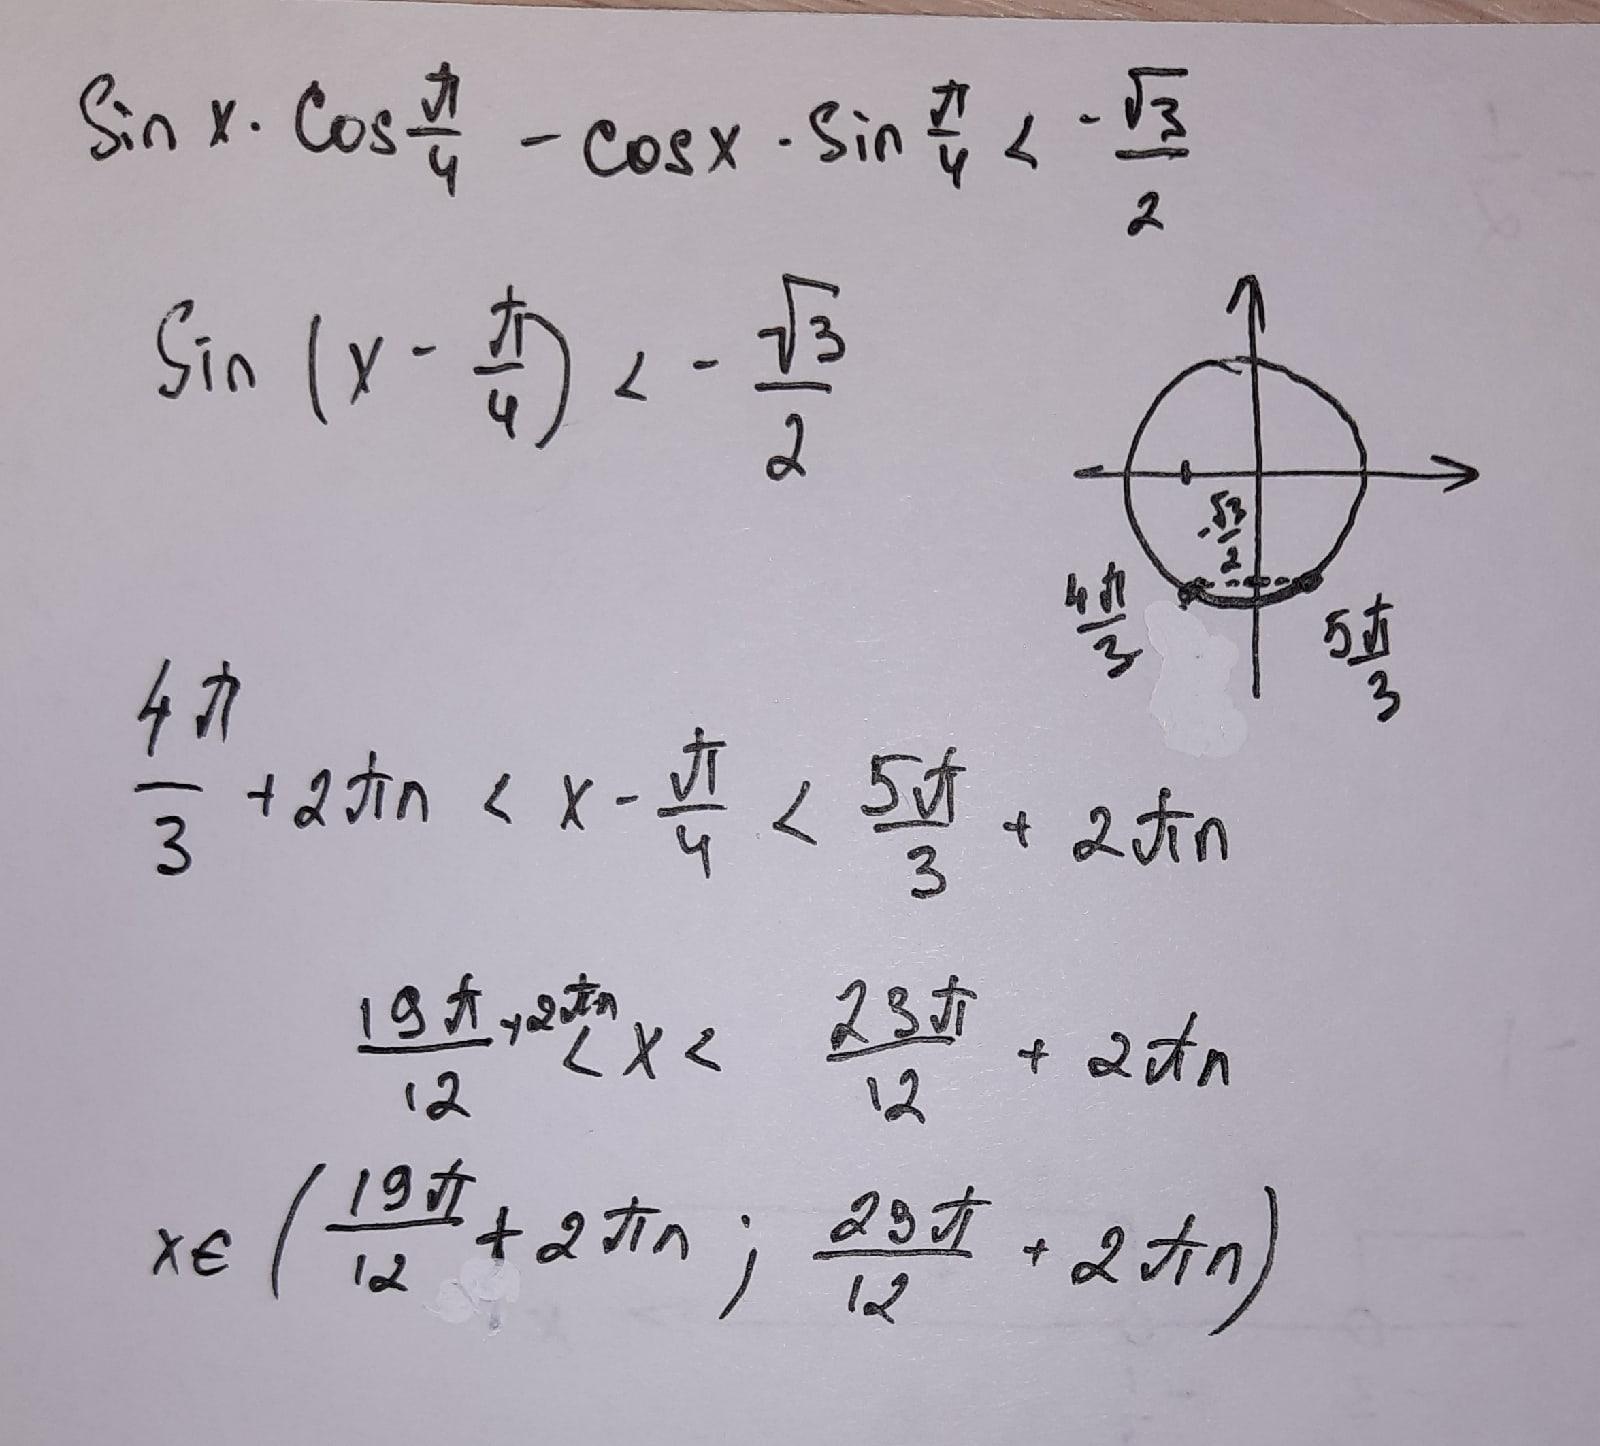 Sin x · Cos π/4 - Cos x · Sin π/4 < -√3/2
Sin (x - π/4) < -√3/2
-√3/2
4π/3
5π/3
4π/3 + 2πn < x - π/4 < 5π/3 + 2πn
19π/12 + 2πn < x < 23π/12 + 2πn
x ∈ (19π/12 + 2πn ; 23π/12 + 2πn)